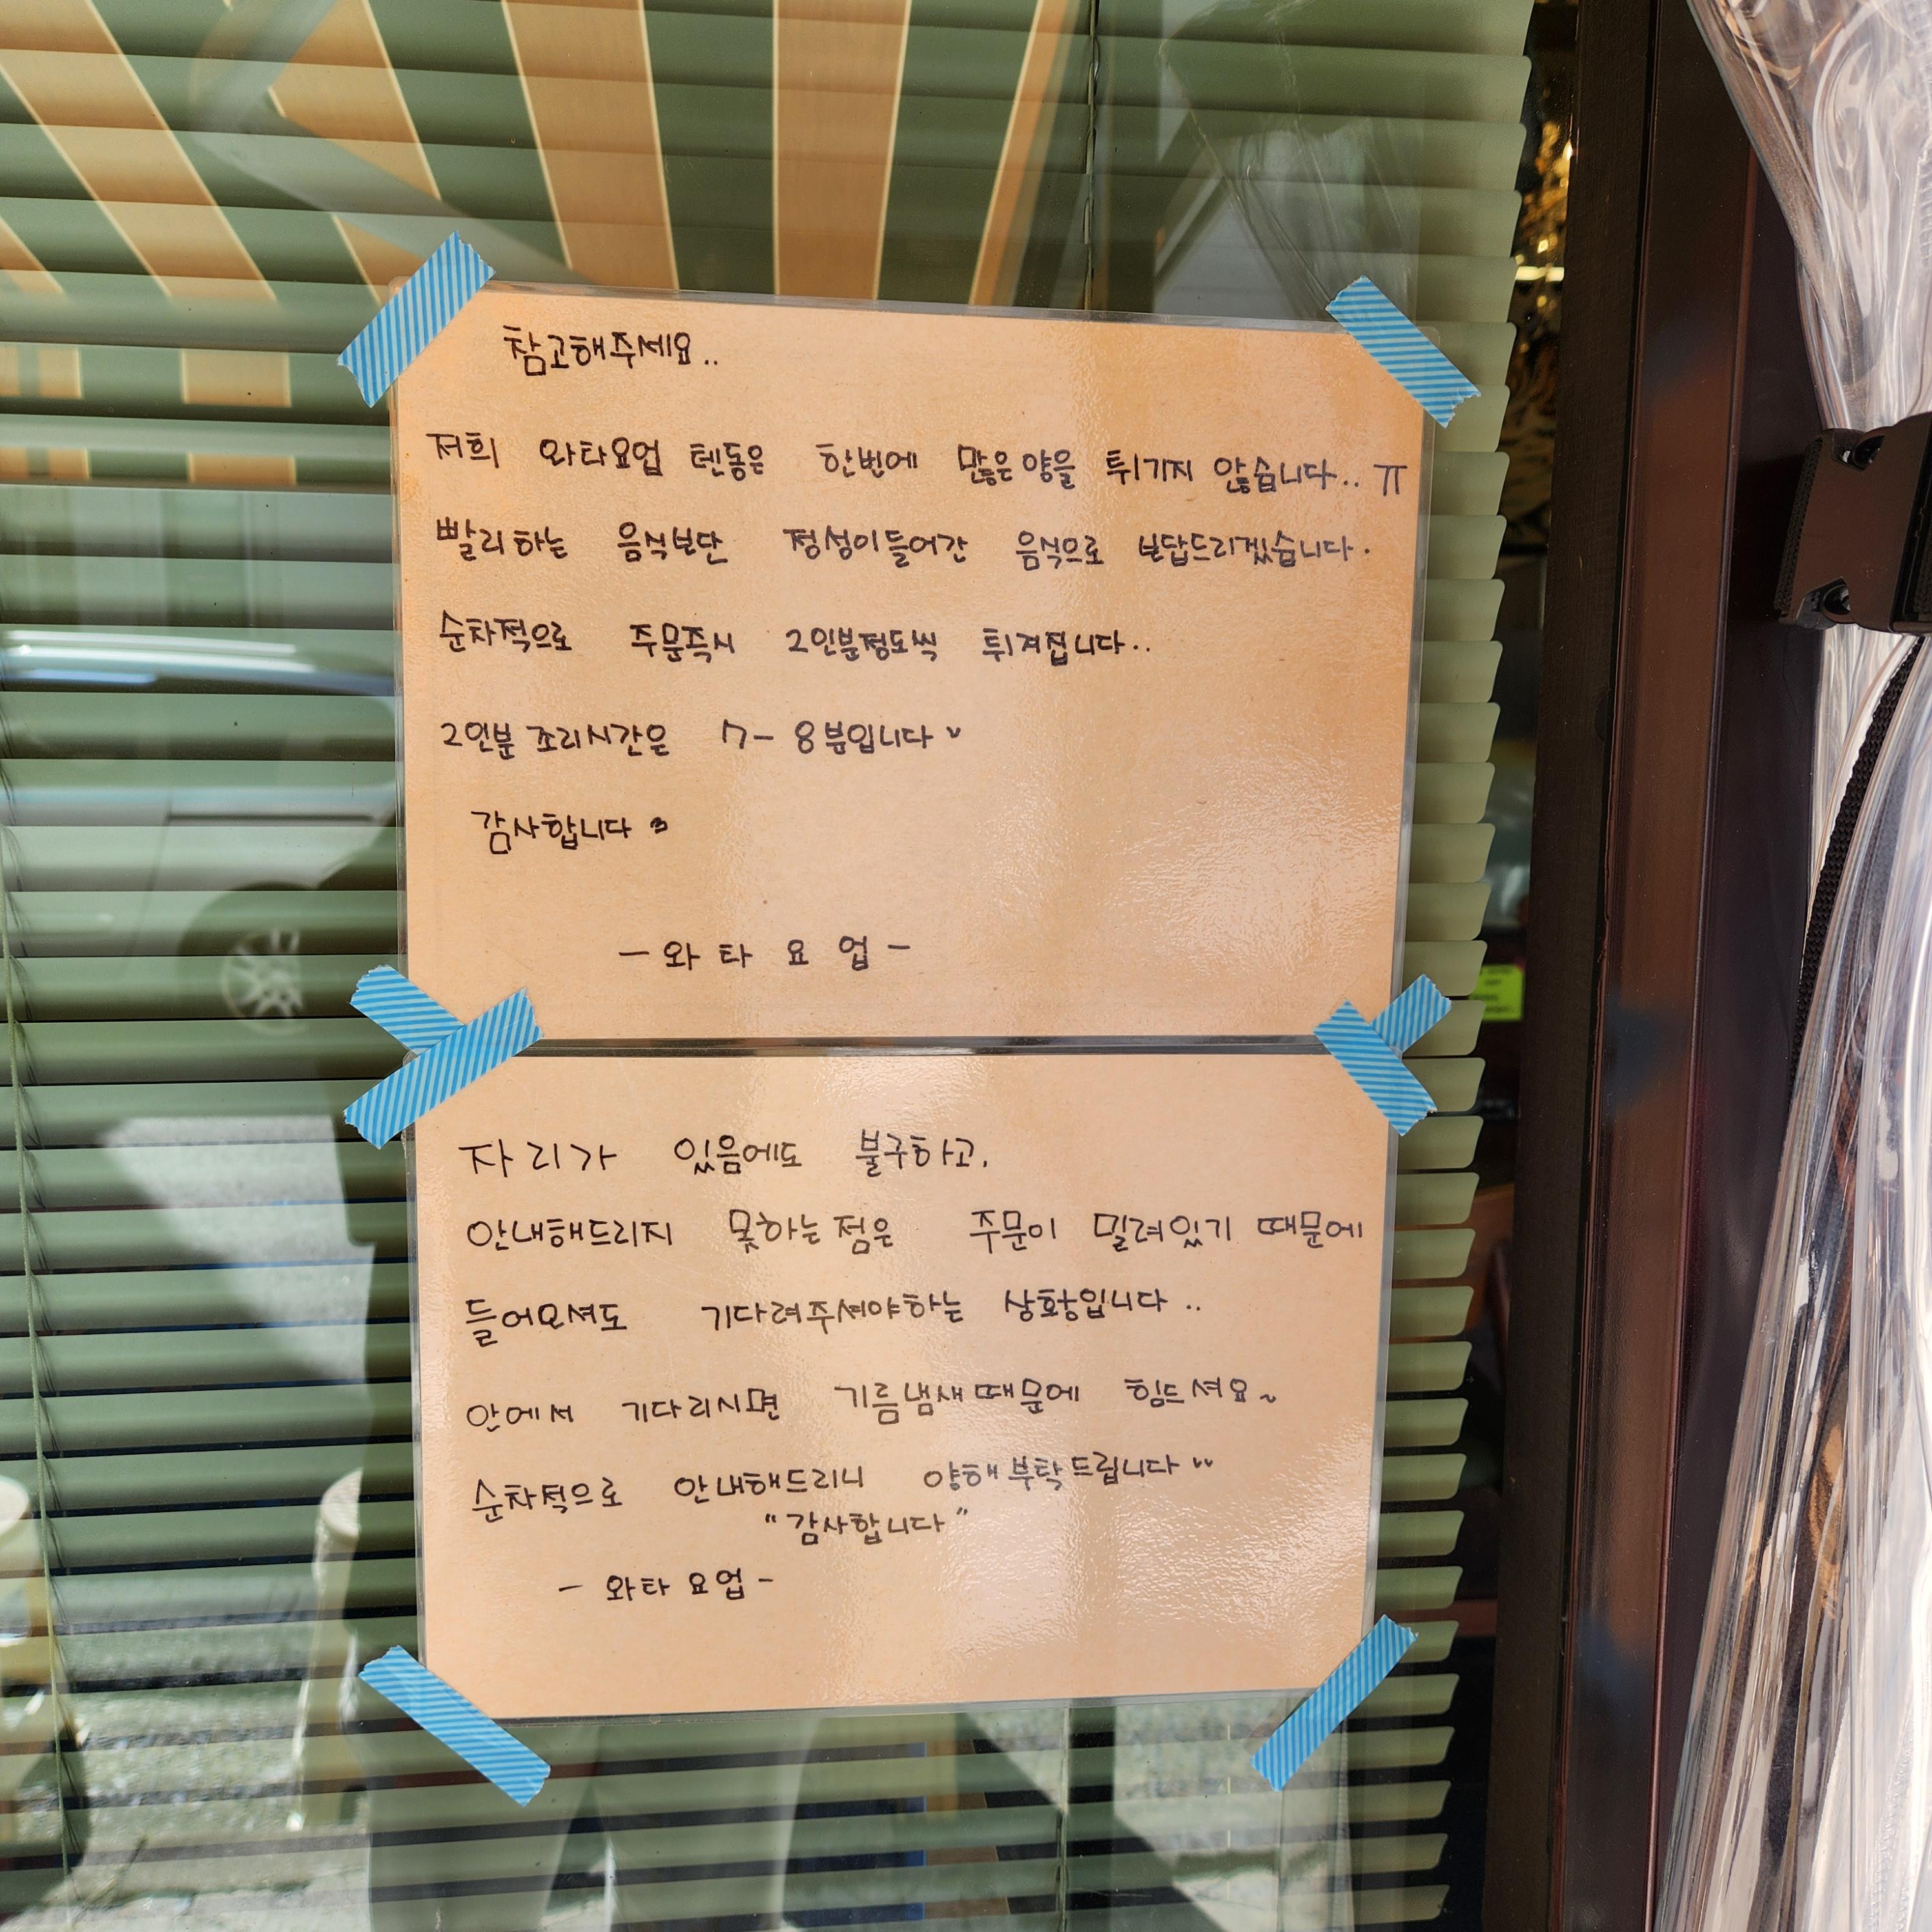 참고해주세요..
저희 와타요업 텐동은 한번에 많은양을 튀기지 않습니다.. ㅠ
빨리하는 음식보단 정성이들어간 음식으로 보답드리겠습니다.
순차적으로 주문즉시 2인분정도씩 튀겨집니다..
2인분 조리시간은 7- 8분입니다
감사합니다
- 와 타 요 업 -
자리가 있음에도 불구하고,
안내해드리지 못하는점은 주문이 밀려있기 때문에
들어오셔도 기다려주셔야하는 상황입니다..
안에서 기다리시면 기름냄새때문에 힘드셔요~
순차적으로 안내해드리니 양해부탁드립니다
"감사합니다"
- 와타요업 -